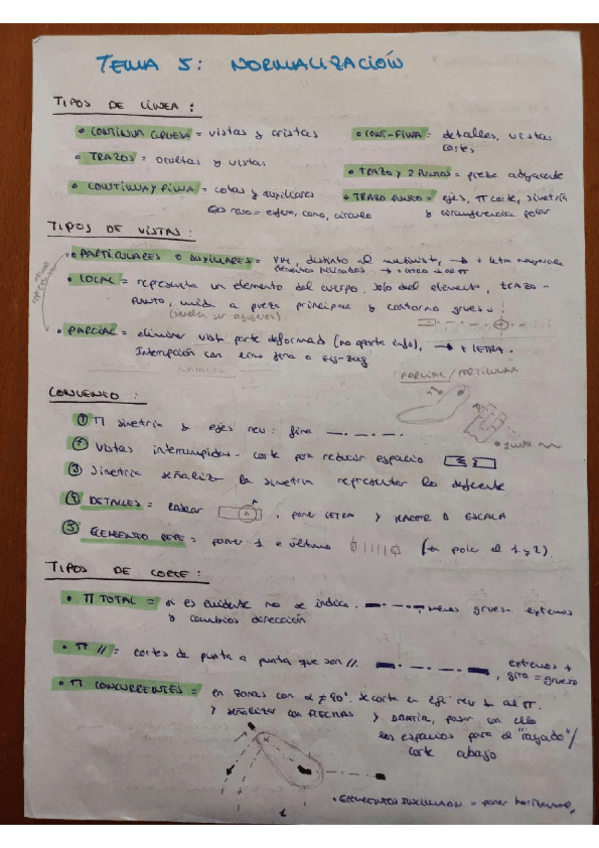 TEMA 5: NORMALIZACIÓN
TIPOS DE LÍNEA:
• CONTINUA GRUESA = vistas y aristas
• CONT-FINA = detalles, vistas cortes
• TRAZOS = ocultas y vistas
• TRAZO Y 2 PUNTOS = pieza adyacente
• CONTINUA Y FINA = cotas y auxiliares
= esfera, cono, círculo
• TRAZO PUNTO = ejes, π corte, simetría
y circunferencia polar
TIPOS DE VISTAS:
• PARTICULARES O AUXILIARES = distinto al → + letra
elementos inclinados
• LOCAL = representa un elemento del cuerpo. Solo del elemento, TRAZO-
PUNTO, unida a pieza principal y contorno grueso
• PARCIAL = eliminar vista parte deformada (no aporta info), → + LETRA.
Interrupción con línea fina o zig-zag
PARCIAL / PARTICULAR
CONVENIO:
① π simetría y ejes rev: fina
② Vistas interrumpidas - corte para reducir espacio
③ Simetría señalizar la simetría representar lo diferente
④ DETALLES = , poner LETRA y HACER A ESCALA
⑤ ELEMENTO REPE = poner 1 o último (en polar el 1 y 2).
TIPOS DE CORTE:
• π TOTAL = si es evidente no se indica. gruesa extremos
y cambios dirección
• π // = cortes de punta a punta que son //. extremos +
giro = grueso
• π CONCURRENTES = en zonas con α ≠ 90°. Se corte en eje rev ⊥ al π.
Y señalizar con FLECHAS y
los espacios para el "rayado"/
corte abajo
• = poner horizontal